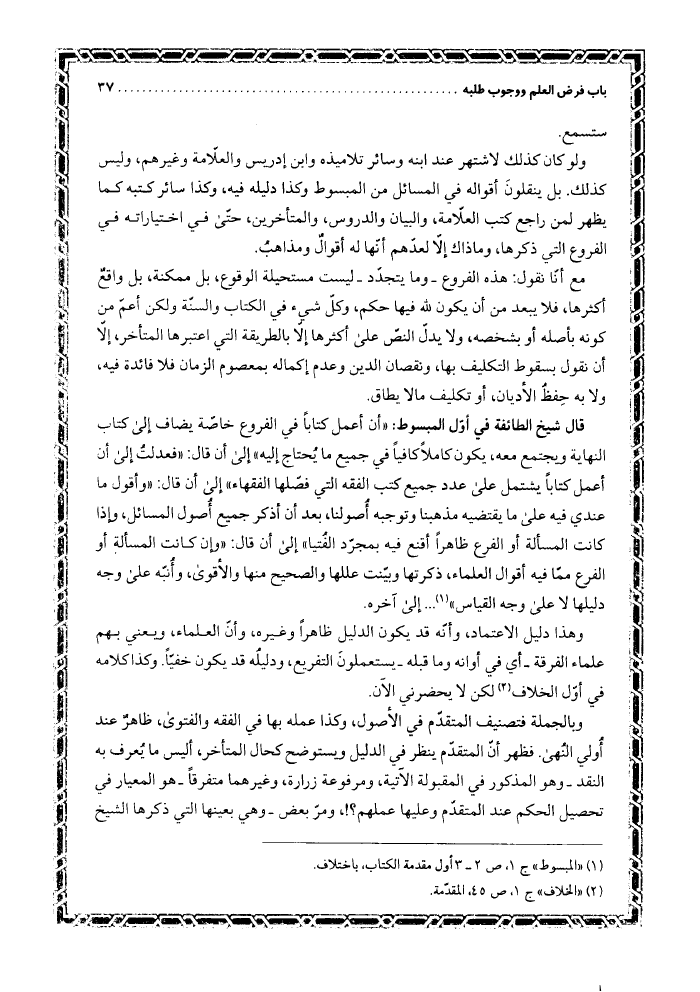 باب فرض العلم ووجوب طلبه ........................................................ ٣٧
ستسمع.
ولو كان كذلك لاشتهر عند ابنه وسائر تلاميذه وابن إدريس والعلّامة وغيرهم، وليس
كذلك. بل ينقلونَ أقواله في المسائل من المبسوط وكذا دليله فيه، وكذا سائر كتبه كما
يظهر لمن راجع كتب العلّامة، والبيان والدروس، والمتأخرين، حتّىٰ في اختياراته في
الفروع التي ذكرها، وماذاك إلّا لعدّهم أنّها له أقوالٌ ومذاهبٌ.
مع أنّا نقول: هذه الفروع ـ وما يتجدّد ـ ليست مستحيلة الوقوع، بل ممكنة، بل واقعٌ
أكثرها، فلا يبعد من أن يكون لله فيها حكم، وكلّ شيء في الكتاب والسنّة ولكن أعمّ من
كونه بأصله أو بشخصه، ولا يدلّ النصّ علىٰ أكثرها إلّا بالطريقة التي اعتبرها المتأخر، إلّا
أن نقول بسقوط التكليف بها، ونقصان الدين وعدم إكماله بمعصوم الزمان فلا فائدة فيه،
ولا به حِفظُ الأديان، أو تكليف مالا يطاق.
قال شيخ الطائفة في أوّل المبسوط: «أن أعمل كتاباً في الفروع خاصّة يضاف إلىٰ كتاب
النهاية ويجتمع معه، يكون كاملاً كافياً في جميع ما يُحتاج إليه» إلىٰ أن قال: «فعدلتُ إلىٰ أن
أعمل كتاباً يشتمل علىٰ عدد جميع كتب الفقه التي فصّلها الفقهاء» إلىٰ أن قال: «وأقول ما
عندي فيه علىٰ ما يقتضيه مذهبنا وتوجبه أُصولنا، بعد أن أذكر جميع أُصول المسائل، وإذا
كانت المسألة أو الفرع ظاهراً أقنع فيه بمجرّد الفُتيا» إلىٰ أن قال: «وإن كانت المسألة أو
الفرع ممّا فيه أقوال العلماء، ذكرتها وبيّنت عللها والصحيح منها والأقوىٰ، وأُنبّه علىٰ وجه
دليلها لا علىٰ وجه القياس»(١)... إلىٰ آخره.
وهذا دليل الاعتماد، وأنّه قد يكون الدليل ظاهراً وغيره، وأنّ العلماء، ويعني بهم
علماء الفرقة ـ أي في أوانه وما قبله ـ يستعملونَ التفريع، ودليلُه قد يكون خفيّاً. وكذا كلامه
في أوّل الخلاف(٢) لكن لا يحضرني الآن.
وبالجملة فتصنيف المتقدّم في الأصول، وكذا عمله بها في الفقه والفتوىٰ، ظاهرٌ عند
أُولي النُهىٰ. فظهر أنّ المتقدّم ينظر في الدليل ويستوضح كحال المتأخر، أليس ما يُعرف به
النقد ـ وهو المذكور في المقبولة الآتية، ومرفوعة زرارة، وغيرهما متفرقاً ـ هو المعيار في
تحصيل الحكم عند المتقدّم وعليها عملهم؟!، ومرّ بعض ـ وهي بعينها التي ذكرها الشيخ
(١) «المبسوط» ج ١، ص ٢ ـ ٣ أول مقدمة الكتاب، باختلاف.
(٢) «الخلاف» ج ١، ص ٤٥، المقدّمة.